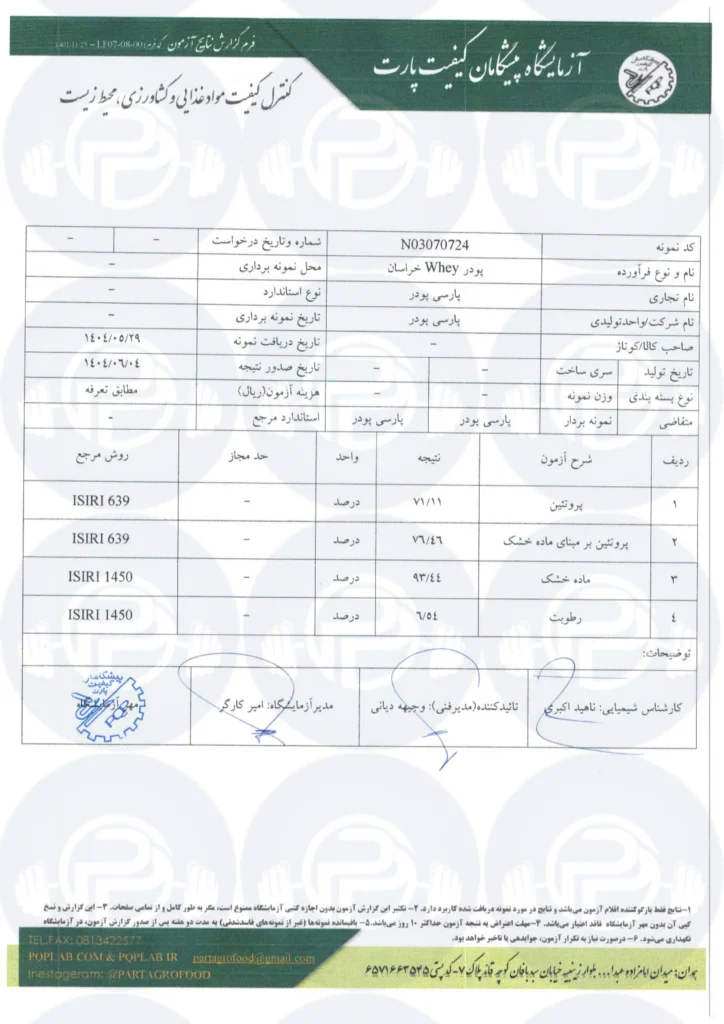 فرم گزارش نتایج آزمون کد فرم: LF07-08-00 – 1401/11/25
آزمایشگاه پیشگامان کیفیت پارت
کنترل کیفیت مواد غذایی و کشاورزی، محیط زیست
کد نمونه N03070724 شماره وتاریخ درخواست – –
نام و نوع فرآورده پودر Whey خراسان محل نمونه برداری –
نام تجاری پارسی پودر نوع استاندارد –
نام شرکت/واحدتولیدی پارسی پودر تاریخ نمونه برداری –
صاحب کالا/کوتاژ – تاریخ دریافت نمونه ۱٤۰٤/۰٥/۲۹
تاریخ تولید – سری ساخت – تاریخ صدور نتیجه ۱٤۰٤/۰٦/۰٤
نوع بسته بندی – وزن نمونه – هزینه آزمون(ریال) مطابق تعرفه
متقاضی پارسی پودر نمونه بردار پارسی پودر استاندارد مرجع –
ردیف شرح آزمون نتیجه واحد حد مجاز روش مرجع
۱ پروتئین ۷۱/۱۱ درصد – ISIRI 639
۲ پروتئین بر مبنای ماده خشک ۷٦/٤٦ درصد – ISIRI 639
۳ ماده خشک ۹۳/٤٤ درصد – ISIRI 1450
٤ رطوبت ٦/٥٤ درصد – ISIRI 1450
توضیحات:
کارشناس شیمیایی: ناهید اکبری تائیدکننده(مدیرفنی): وجیهه دیانی مدیرآزمایشگاه: امیر کارگر مهر آزمایشگاه
پیشگامان
کیفیت
پارت
PQP
۱-نتایج فقط بازگوکننده اقلام آزمون می‌باشد و نتایج در مورد نمونه دریافت شده کاربرد دارد. ۲- تکثیر این گزارش آزمون بدون اجازه کتبی آزمایشگاه ممنوع است، مگر به طور کامل و از تمامی صفحات. ۳- این گزارش و نسخ
کپی آن بدون مهر آزمایشگاه فاقد اعتبار می‌باشد. ۴-مهلت اعتراض به نتیجه آزمون حداکثر ۱۰ روز می‌باشد. ۵- باقیمانده نمونه‌ها (غیر از نمونه‌های فاسدشدنی) به مدت دو هفته پس از صدور گزارش آزمون، در آزمایشگاه
نگهداری می‌شود. ۶- درصورت نیاز به تکرار آزمون، جوابدهی با تاخیر خواهد بود.
TEL.FAX: 0813422577
POPLAB COM & PQPLAB IR partagrofood@gmail.com
Inestageram: @PARTAGROFOOD
همدان: میدان امامزاده عبدا...، بلوار زینبیه خیابان سیدبافان کوچه قناد پلاک ۷-کدپستی ۶۵۷۱۶۶۳۵۴۵